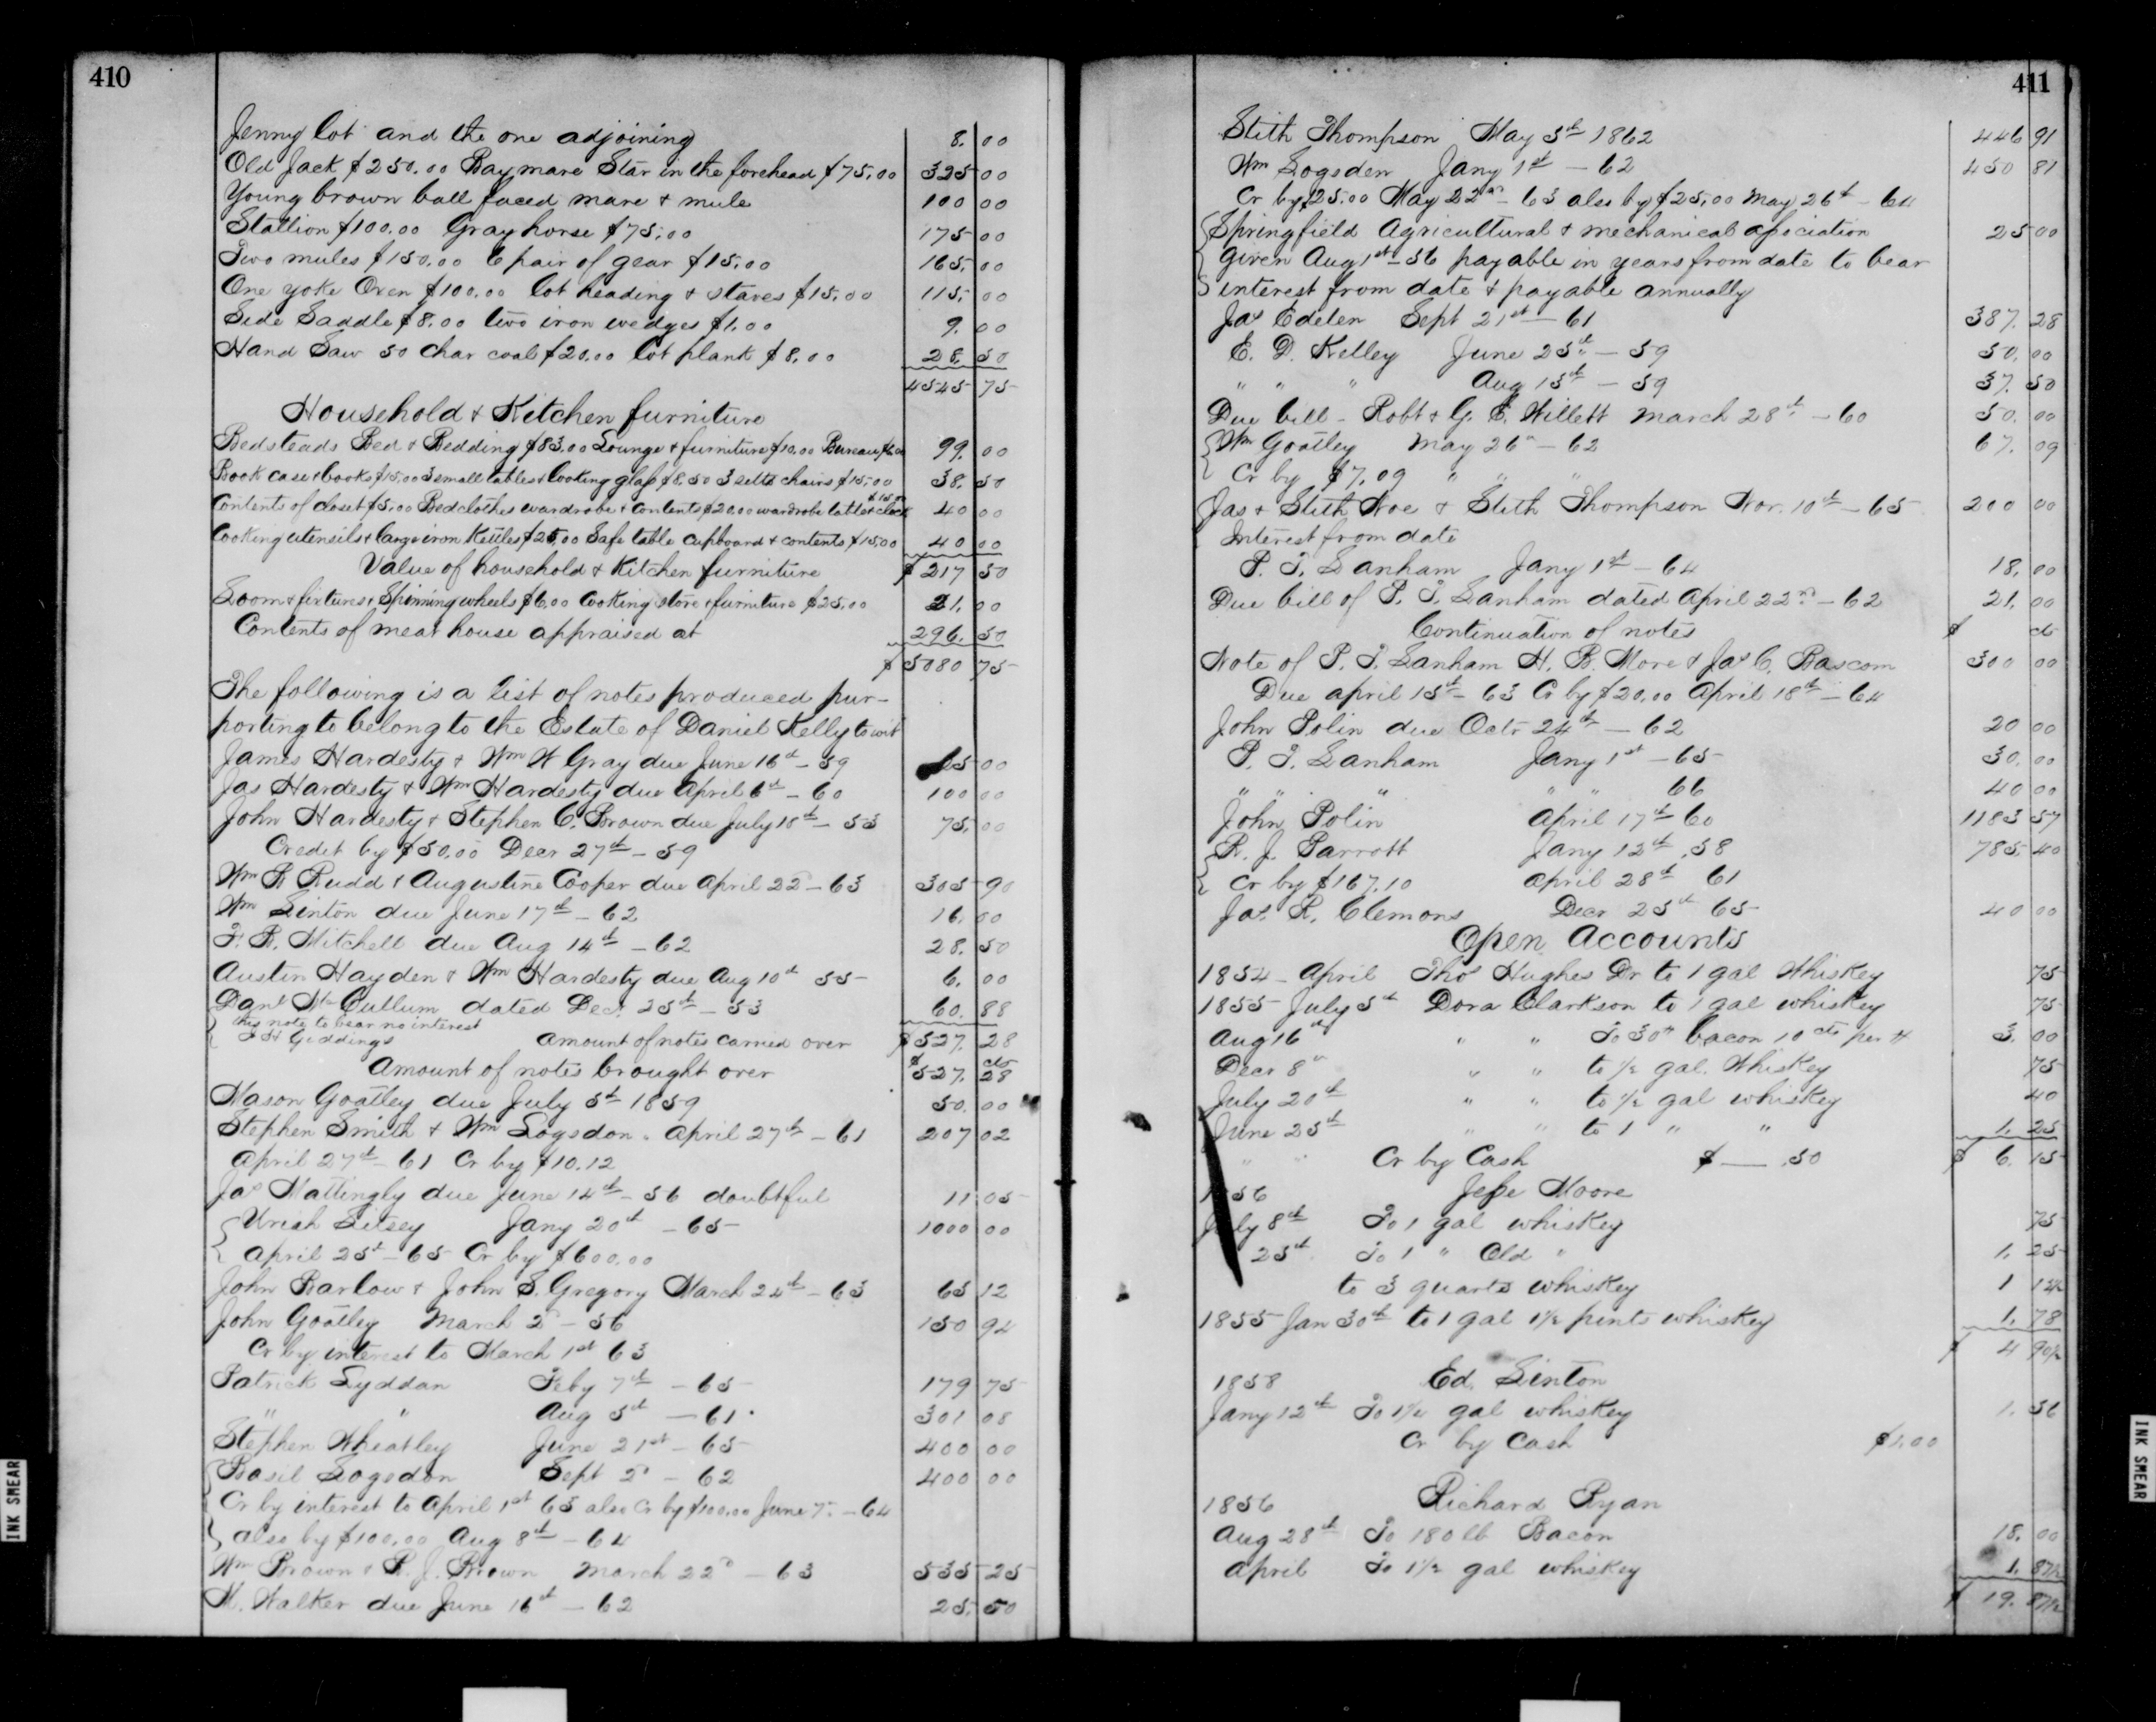 410
Jenny lot and the one adjoining 8.00
Old Jack $250.00 Bay mare Star in the forehead $75.00 325 00
Young brown ball faced mare & mule 100 00
Stallion $100.00 Gray horse $75.00 175 00
Two mules $150.00 6 pair of gear $15.00 165.00
One yoke Oxen $100.00 lot heading & staves $15.00 115.00
Side Saddle $8.00 two iron wedges $1.00 9.00
Hand Saw 50 Char coal $20.00 lot plank $8.00 28.50
4545 75
Household & Kitchen furniture
Bedsteads Bed & Bedding $83.00 Lounge & furniture $10.00 Bureau $6.00 99.00
Book case & books $15.00 3 small tables & looking glass $8.50 3 setts chairs $15.00 38.50
Contents of closet $5.00 Bedclothes wardrobe & contents $20.00 wardrobe table & clock $15.00 40 00
Cooking utensils & large iron Kettles $25.00 Safe table cupboard & contents $15.00 40 00
Value of household & Kitchen furniture $217 50
Loom & fixtures & Spinning wheels $6.00 Cooking stove & furniture $25.00 21.00
Contents of meat house appraised at 296.50
$5080 75
The following is a list of notes produced pur-
porting to belong to the Estate of Daniel Kelly to wit
James Hardesty & Wm W Gray due June 16th - 59 25 00
Jas Hardesty & Wm Hardesty due April 6th - 60 100 00
John Hardesty & Stephen C. Brown due July 18th - 53 75.00
Credit by $50.00 Decr 27th - 59
Wm R Rudd & Augustine Cooper due April 22d - 63 305 90
Wm Linton due June 17th - 62 16.00
F. R. Mitchell due Aug 14th - 62 28.50
Austin Hayden & Wm Hardesty due Aug 10th 55 6.00
Danl McCullum dated Decr 25th - 53 60.88
this note to bear no interest
Giddings Amount of notes carried over $527.28
Amount of notes brought over $527. cts 28
Mason Goatley due July 5th 1859 50.00
Stephen Smith & Wm Logsdon. April 27th - 61 207 02
April 27th - 61 Cr by $10.12
Jas Mattingly due June 14th - 56 doubtful 11 05
Uriah Litsey Jany 20th - 65 1000 00
April 25th - 65 Cr by $600.00
John Barlow & John S. Gregory March 24th - 63 65 12
John Goatley March 2d - 56 150 94
Cr by interest to March 1st 63
Patrick Lyddan Feby 7th - 65 179 75
" " Aug 5th - 61. 301 08
Stephen Wheatley June 21st - 65 400 00
Basil Logsdon Sept 2d - 62 400 00
Cr by interest to April 1st 63 also Cr by $100.00 June 7th - 64
also by $100.00 Aug 8th - 64
Wm Brown & R. J. Brown March 22d - 63 535 25
M. Walker due June 16th - 62 25.50
INK SMEAR
411
Stith Thompson May 5th 1862 446 91
Wm Logsden Jany 1st - 62 450 81
Cr by $25.00 May 22nd - 63 also by $25.00 May 26th - 64
Springfield Agricultural & mechanical association 25 00
Given Aug 1st - 56 payable in years from date to bear
interest from date & payable annually
Jas Edelen Sept 21st - 61 387.28
E. D. Kelley June 25th - 59 50.00
" " " Aug 15th - 59 37.50
Due bill - Robt & G. E. Willett March 28th - 60 50.00
Wm Goatley May 26th - 62 67.09
Cr by $7.09 " " "
Jas & Stith Noe & Stith Thompson Nov. 10th - 65 200 00
Interest from date
P. T. Lanham Jany 1st - 64 18.00
Due bill of P. T. Lanham dated April 22nd - 62 21.00
Continuation of notes $ cts
Note of P. T. Lanham H. B. More & Jas C. Bascom 300 00
Due april 15th - 63 Cr by $20.00 April 18th - 64
John Polin due Octr 24th - 62 20 00
P. T. Lanham Jany 1st - 65 30.00
" " " " " 66 40 00
John Polin April 17th 60 1183 57
R. J. Parrott Jany 12th .58 785.40
Cr by $167.10 April 28th 61
Jas. R. Clemons Decr 25th 65 40 00
Open Accounts
1854 - April Thos Hughes Dr to 1 gal Whiskey 75
1855 - July 5th Dora Clarkson to 1 gal whiskey 75
Aug 16th " " To 30# bacon 10 cts per # 3.00
Decr 8th " " to 1/2 gal. Whiskey 75
July 20th " " to 1/2 gal whiskey 40
June 25th " " to 1 " " 1.25
" " Cr by Cash $ — .50 $ 6.15
1856 Jesse Moore
July 8th To 1 gal whiskey 75
25th To 1 " Old " 1.25
to 3 quarts whiskey 1 12 1/2
1855 - Jan 30th to 1 gal 1 1/2 pints whiskey 1.78
$ 4 90 1/2
1858 Ed. Linton
Jany 12th To 1 1/4 gal whiskey 1.56
Cr by Cash $1.00
1856 Richard Ryan
Aug 28th To 180 lb Bacon 18.00
April To 1 1/2 gal whiskey 1.87 1/2
$ 19.87 1/2
INK SMEAR